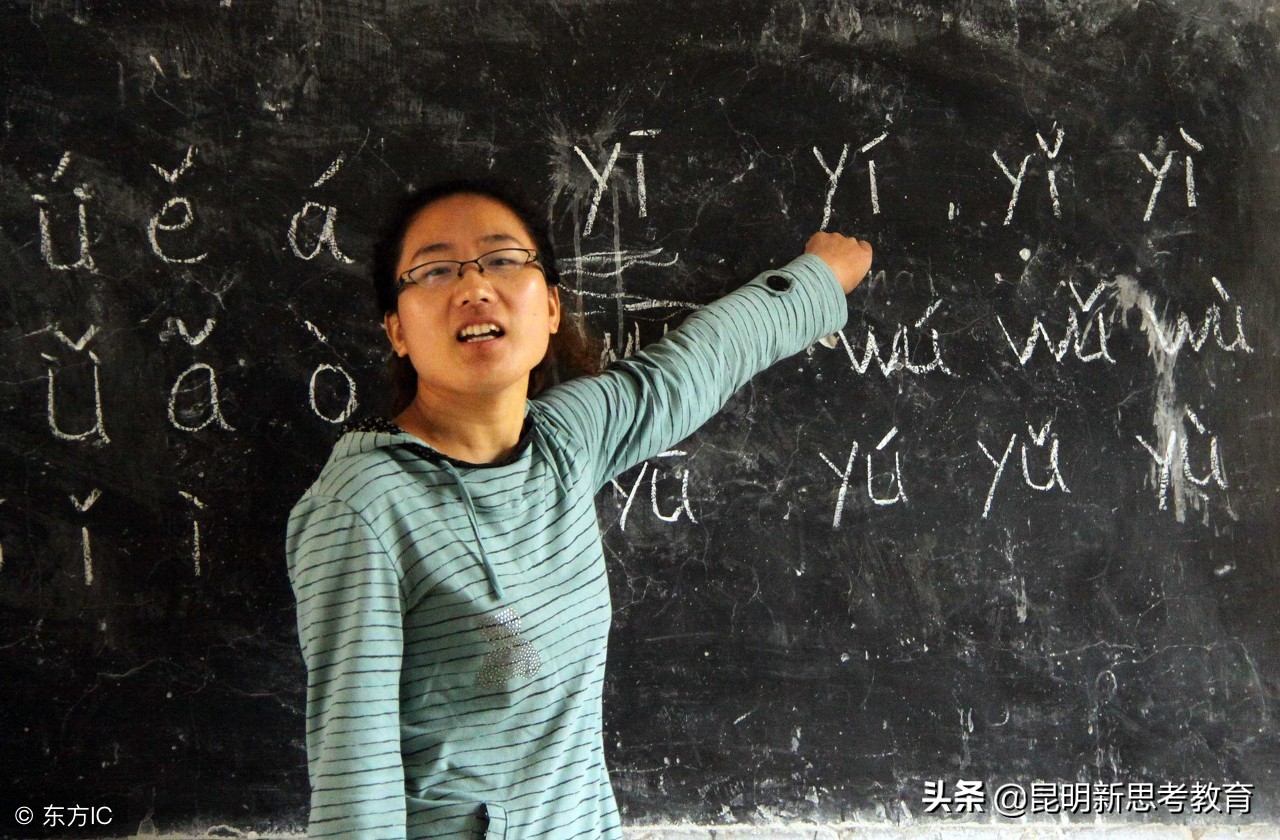 ǘ ě á yī yí yǐ yì
ǚ ǎ ò wú wǔ wù
ǐ ì yū yú yǔ yù
© 东方IC
头条 @昆明新思考教育